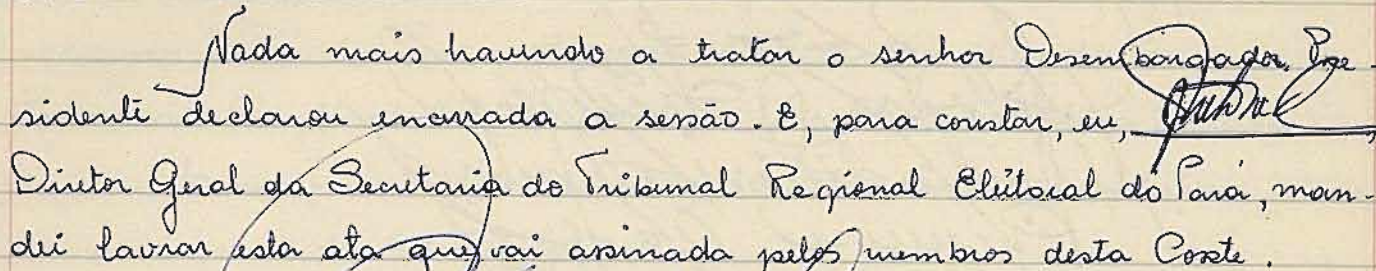 Nada mais havendo a tratar o senhor Desembargador Pre-
sidente declarou encerrada a sessão. E, para constar, eu,
Diretor Geral da Secretaria do Tribunal Regional Eleitoral do Pará, man-
dei lavrar esta ata que vai assinada pelos membros desta Corte.